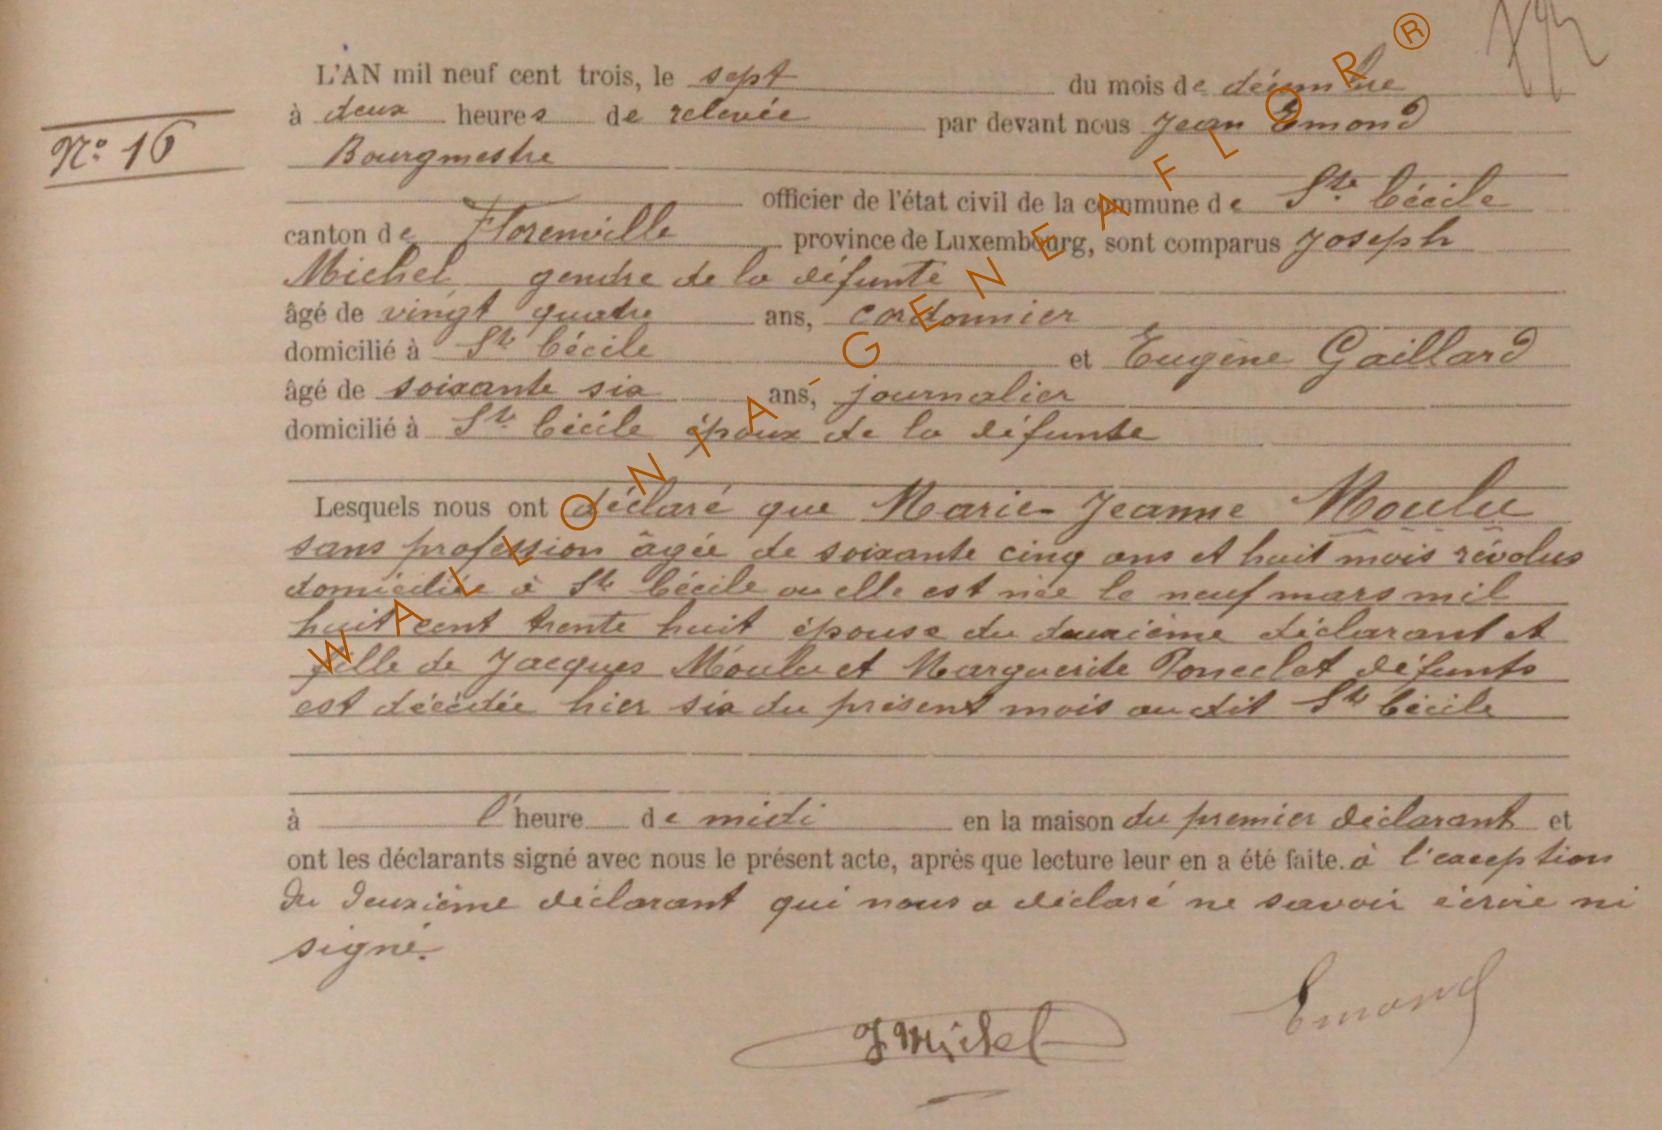 L'AN mil neuf cent trois, le sept du mois de décembre
à deux heures de relevée par devant nous Jean Emond
N° 16
Bourgmestre
officier de l'état civil de la commune de Ste Cécile
canton de Florenville province de Luxembourg, sont comparus Joseph
Michel gendre de la défunte
âgé de vingt quatre ans, cordonnier
domicilié à Ste Cécile et Eugène Gaillard
âgé de soixante six ans, journalier
domicilié à Ste Cécile époux de la défunte
Lesquels nous ont déclaré que Marie-Jeanne Moulu
sans profession âgée de soixante cinq ans et huit mois révolus
domiciliée à Ste Cécile ou elle est née le neuf mars mil
huit cent trente huit épouse du deuxième déclarant et
fille de Jacques Moulu et Marguerite Poncelet défunts
est décédée hier six du présent mois au dit Ste Cécile
à l'heure de midi en la maison du premier déclarant et
ont les déclarants signé avec nous le présent acte, après que lecture leur en a été faite. à l'exception
du deuxième déclarant qui nous a déclaré ne savoir écrire ni
signé.
J Michel
Emond
WALLONIA-GENEAFLOR®